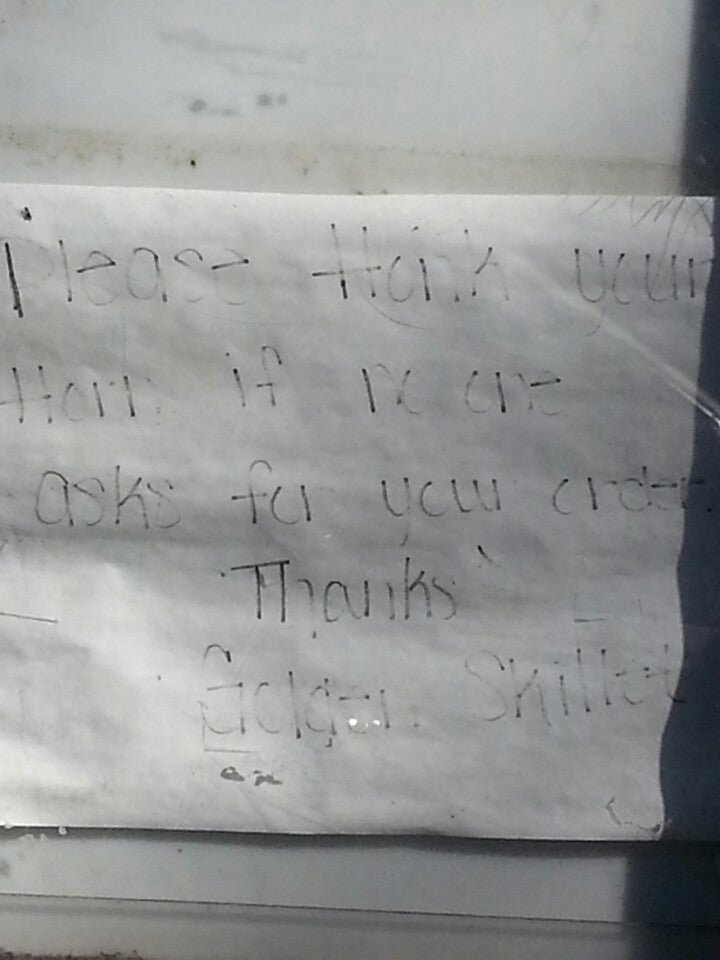 Please Honk your
Horn if no one
asks for your order.
Thanks
Golden Skillet